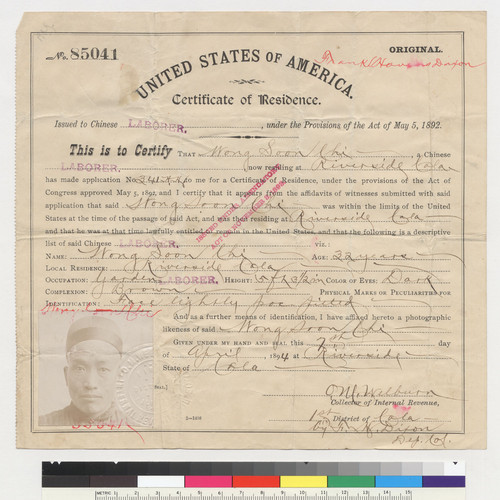 No. 85041
ORIGINAL.
UNITED STATES OF AMERICA.
Certificate of Residence.
Issued to Chinese LABORER. , under the Provisions of the Act of May 5, 1892.
This is to Certify THAT Wong Soon Chi , a Chinese
LABORER. , now residing at Riverside Cala
has made application No. to me for a Certificate of Residence, under the provisions of the Act of
Congress approved May 5, 1892, and I certify that it appears from the affidavits of witnesses submitted with said
application that said Wong Soon Chi was within the limits of the United
States at the time of the passage of said Act, and was then residing at Riverside Cala
and that he was at that time lawfully entitled to remain in the United States, and that the following is a descriptive
list of said Chinese LABORER. , viz.:
NAME: Wong Soon Chi AGE: 22 years
LOCAL RESIDENCE: Riverside Cala
OCCUPATION: LABORER. HEIGHT: COLOR OF EYES: Dark
COMPLEXION: Brown PHYSICAL MARKS OR PECULIARITIES FOR
IDENTIFICATION: Face slightly poc pitted
And as a further means of identification, I have affixed hereto a photographic
likeness of said Wong Soon Chi
GIVEN UNDER MY HAND AND SEAL this 7th day
of April , 1894, at Riverside
State of Cala
[SEAL.]
O M. Welburn
Collector of Internal Revenue,
1st District of Cala
By F. H. Dixon
Dep. Col.
85041